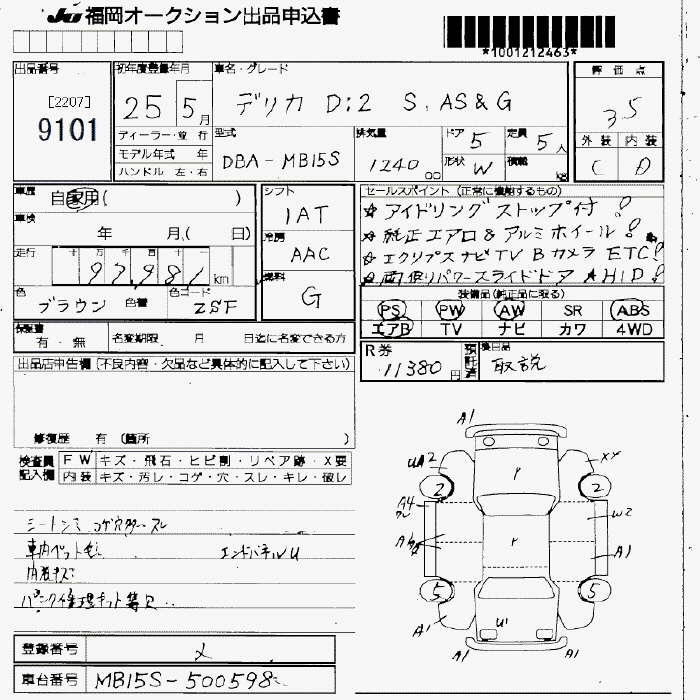 JU 福岡オークション出品申込書
*1001212463*
出品番号
[2207]
9101
初年度登録年月
25 5月
車名・グレード
デリカ D:2 S. AS&G
評価点
3.5
外装 内装
C D
ディーラー・並行
モデル年式 年
ハンドル 左・右
型式
DBA-MB15S
排気量
1240 cc
ドア 5
形状 W
定員 5人
積載 kg
車歴
自家用( )
車検
年 月( 日)
走行
十 万 千 百 十
97981 km
色
ブラウン 色替
色コード
ZSF
シフト
1AT
冷房
AAC
燃料
G
セールスポイント (正常に機能するもの)
☆アイドリングストップ付!
☆純正エアロ&アルミホイール!
☆エクリプスナビTV Bカメラ ETC!
☆両側パワースライドドア AHID!
装備品(純正品に限る)
PS PW AW SR ABS
エアB TV ナビ カワ 4WD
保証書
有・無
名変期限 月 日迄に名変できる方
R券
11380円
預託済
後日品
取説
出品店申告欄 (不良内容・欠品など具体的に記入して下さい)
修復歴 有 (箇所 )
検査員記入欄
FW キズ・飛石・ヒビ割・リペア跡・X要
内装 キズ・汚レ・コゲ・穴・スレ・キレ・破レ
シートシミ コゲ穴 スレ
車内ペット毛 エンドパネルU
内装キズ
パンク修理キット欠
A1
UA2
XX
2
2
Y
A4
W2
Y
A1
5
5
A1
U1
A1
A1
登録番号
メ
車台番号
MB15S-500598